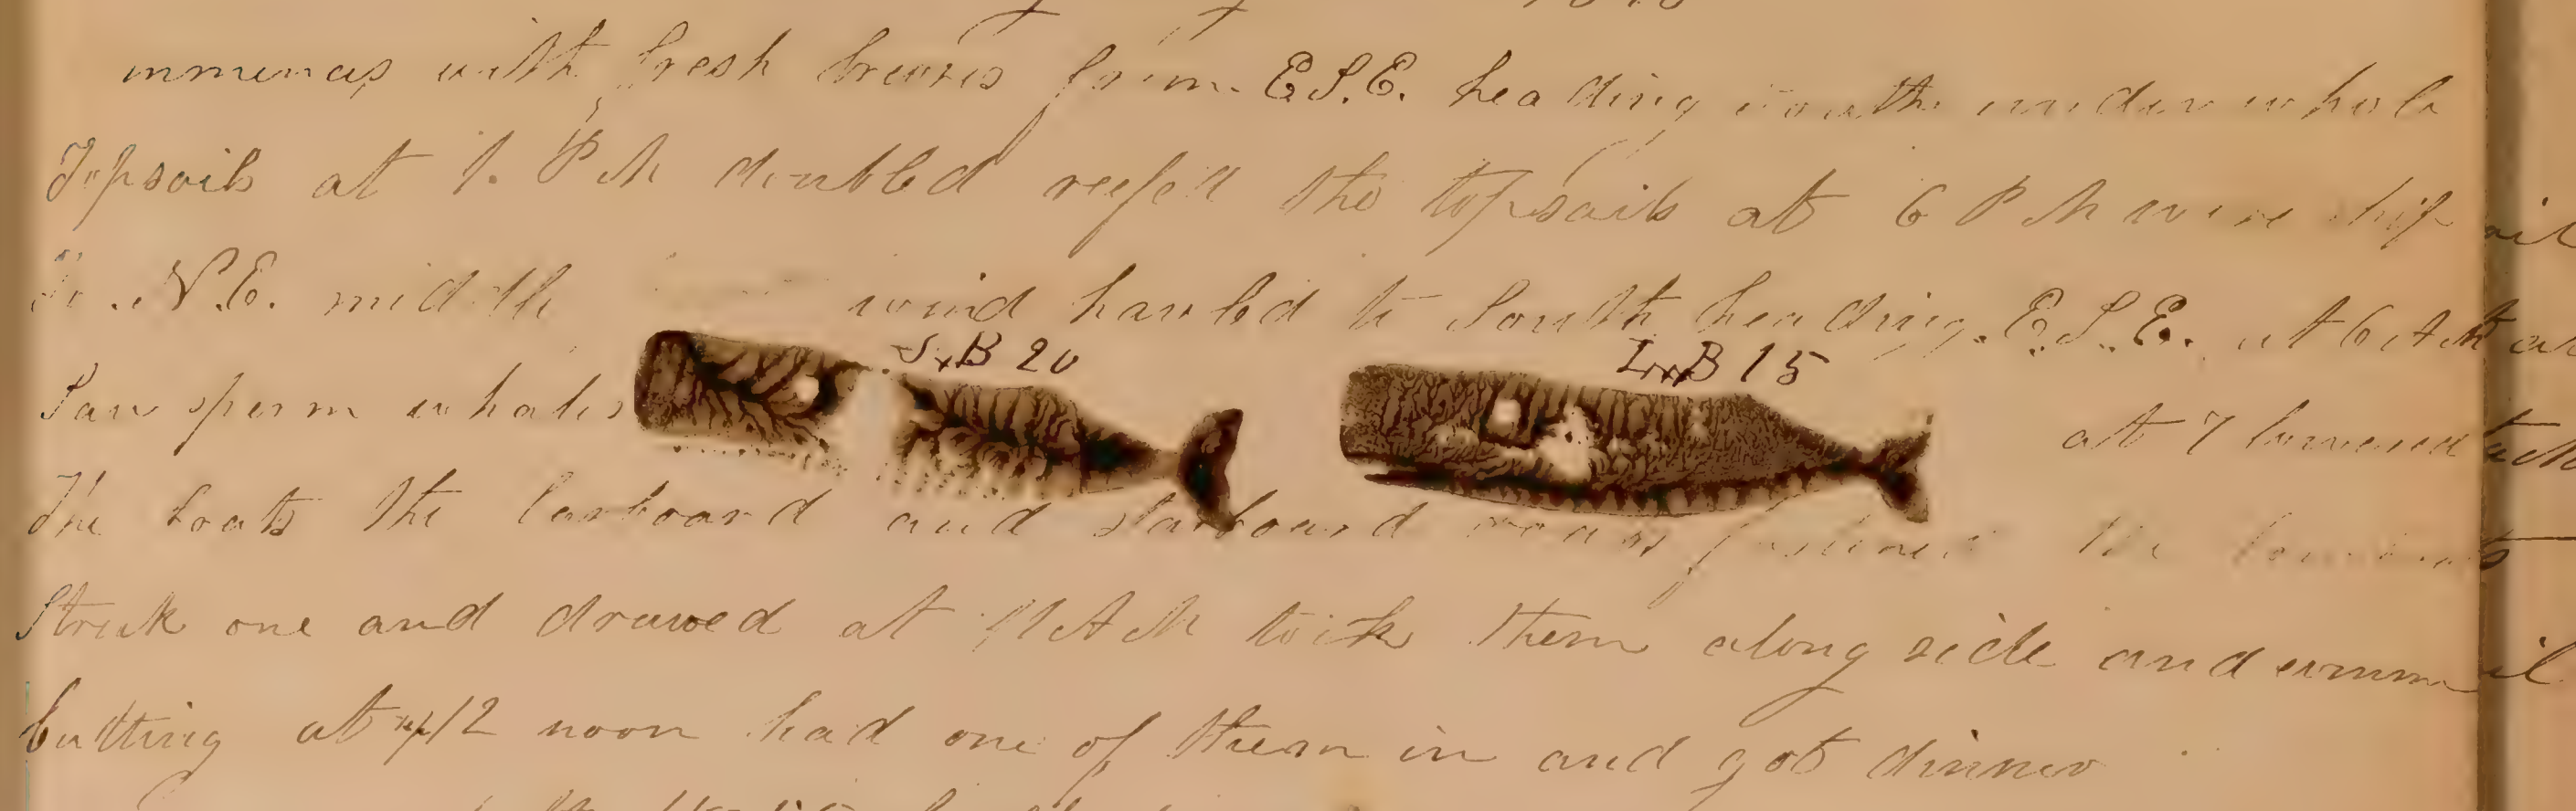 mmences with fresh breezes from E.S.E. heading south under whole
Topsails at 1. P M doubled reefed the topsails at 6 P M wore ship
to N.E. middle wind hauled to South heading E.S.E. at 6 A M
S,B 20 L B 15
Saw sperm whales at 7 lowered
The boats the larboard and starboard fastened the
Struk one and drawed at 11 A M took them along side and comm
Cutting at 12 noon had one of them in and got dinner